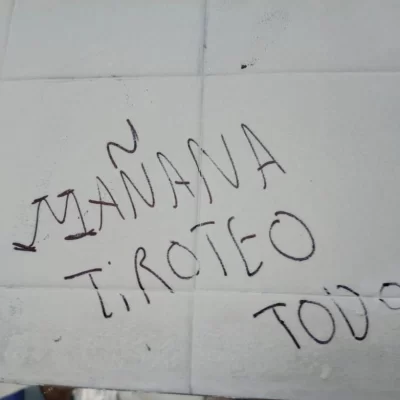 MAÑANA
TiROTEO
TODO